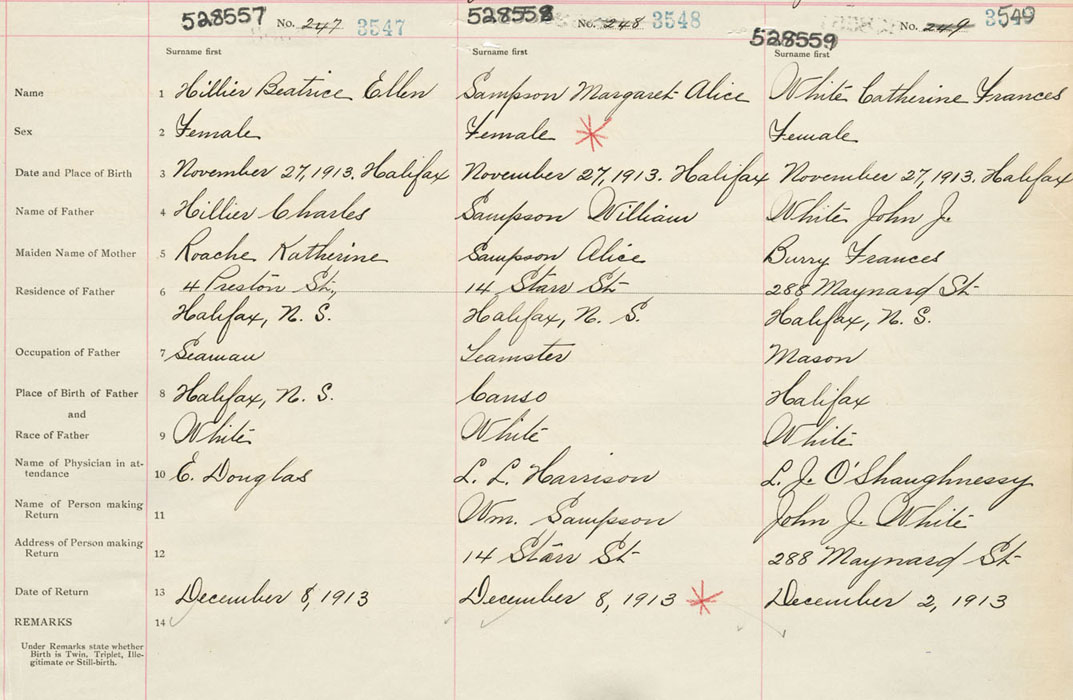 528557 No. 247 3547 528558 No. 248 3548 528559 No. 249 3549
Surname first Surname first Surname first
Name 1 Hillier Beatrice Ellen Sampson Margaret Alice White Catherine Frances
Sex 2 Female Female Female
Date and Place of Birth 3 November 27, 1913. Halifax November 27, 1913. Halifax November 27, 1913. Halifax
Name of Father 4 Hillier Charles Sampson William White John J.
Maiden Name of Mother 5 Roache Katherine Sampson Alice Burry Frances
Residence of Father 6 4 Preston St., 14 Starr St. 288 Maynard St.
Halifax, N. S. Halifax, N. S. Halifax, N. S.
Occupation of Father 7 Seaman Teamster Mason
Place of Birth of Father 8 Halifax, N. S. Canso Halifax
and
Race of Father 9 White White White
Name of Physician in at-
tendance 10 E. Douglas L. L. Harrison L. J. O'Shaughnessy
Name of Person making
Return 11 Wm. Sampson John J. White
Address of Person making
Return 12 14 Starr St. 288 Maynard St.
Date of Return 13 December 8, 1913 December 8, 1913 December 2, 1913
REMARKS 14
Under Remarks state whether
Birth is Twin, Triplet, Ille-
gitimate or Still-birth.